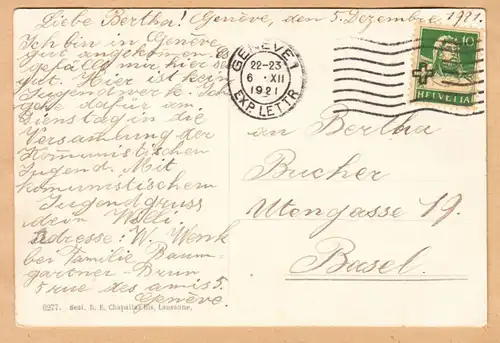 Liebe Bertha! Genève, den 5. Dezembre, 1921.
Ich bin in Genève
gut angekommen. Es
gefällt mir hier sehr
gut. Hier ist kein
Jugendwerk. Ich
gehe dafür am
Dienstag in die
Versamlung der
Komunistischen
Jugend. Mit
komunistischem
Jugendgruss
dein Willi.
Adresse: W. Wenk
bei Familie Baum-
gartner-Brun
5 rue des amis 5.
Genève.
GENÈVE 1
22-23
6 · XII
1921
EXP. LETTR.
10
HELVETIA
an Bertha
Bucher
Utengasse 19.
Basel.
6277. Soal. R. E. Chapallaz fils, Lausanne.